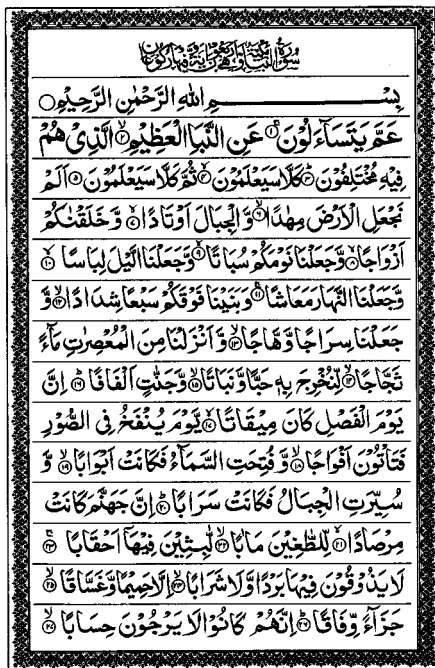 سُوْرَةُ النَّبَاِ مَكِّيَّةٌ وَّهِيَ اَرْبَعُوْنَ اٰيَةً وَّفِيْهَا رُكُوْعَانِ
بِسْمِ اللهِ الرَّحْمٰنِ الرَّحِيْمِ
عَمَّ يَتَسَآءَلُوْنَ ۚ﴿۱﴾ عَنِ النَّبَاِ الْعَظِيْمِ ۙ﴿۲﴾ الَّذِيْ هُمْ
فِيْهِ مُخْتَلِفُوْنَ ؕ﴿۳﴾ كَلَّا سَيَعْلَمُوْنَ ۙ﴿۴﴾ ثُمَّ كَلَّا سَيَعْلَمُوْنَ ﴿۵﴾ اَلَمْ
نَجْعَلِ الْاَرْضَ مِهٰدًا ۙ﴿۶﴾ وَّالْجِبَالَ اَوْتَادًا ۪ۙ﴿۷﴾ وَّخَلَقْنٰكُمْ
اَزْوَاجًا ۙ﴿۸﴾ وَّجَعَلْنَا نَوْمَكُمْ سُبَاتًا ۙ﴿۹﴾ وَّجَعَلْنَا الَّيْلَ لِبَاسًا ۙ﴿۱۰﴾
وَّجَعَلْنَا النَّهَارَ مَعَاشًا ۪﴿۱۱﴾ وَبَنَيْنَا فَوْقَكُمْ سَبْعًا شِدَادًا ۙ﴿۱۲﴾ وَّ
جَعَلْنَا سِرَاجًا وَّهَّاجًا ۪ۙ﴿۱۳﴾ وَّاَنْزَلْنَا مِنَ الْمُعْصِرٰتِ مَآءً
ثَجَّاجًا ۙ﴿۱۴﴾ لِّنُخْرِجَ بِهٖ حَبًّا وَّنَبَاتًا ۙ﴿۱۵﴾ وَّجَنّٰتٍ اَلْفَافًا ؕ﴿۱۶﴾ اِنَّ
يَوْمَ الْفَصْلِ كَانَ مِيْقَاتًا ۙ﴿۱۷﴾ يَّوْمَ يُنْفَخُ فِي الصُّوْرِ
فَتَاْتُوْنَ اَفْوَاجًا ۙ﴿۱۸﴾ وَّفُتِحَتِ السَّمَآءُ فَكَانَتْ اَبْوَابًا ۙ﴿۱۹﴾ وَّ
سُيِّرَتِ الْجِبَالُ فَكَانَتْ سَرَابًا ؕ﴿۲۰﴾ اِنَّ جَهَنَّمَ كَانَتْ
مِرْصَادًا ۪ۙ﴿۲۱﴾ لِّلطّٰغِيْنَ مَاٰبًا ۙ﴿۲۲﴾ لّٰبِثِيْنَ فِيْهَاۤ اَحْقَابًا ۚ﴿۲۳﴾
لَا يَذُوْقُوْنَ فِيْهَا بَرْدًا وَّلَا شَرَابًا ۙ﴿۲۴﴾ اِلَّا حَمِيْمًا وَّغَسَّاقًا ۙ﴿۲۵﴾
جَزَآءً وِّفَاقًا ؕ﴿۲۶﴾ اِنَّهُمْ كَانُوْا لَا يَرْجُوْنَ حِسَابًا ۙ﴿۲۷﴾